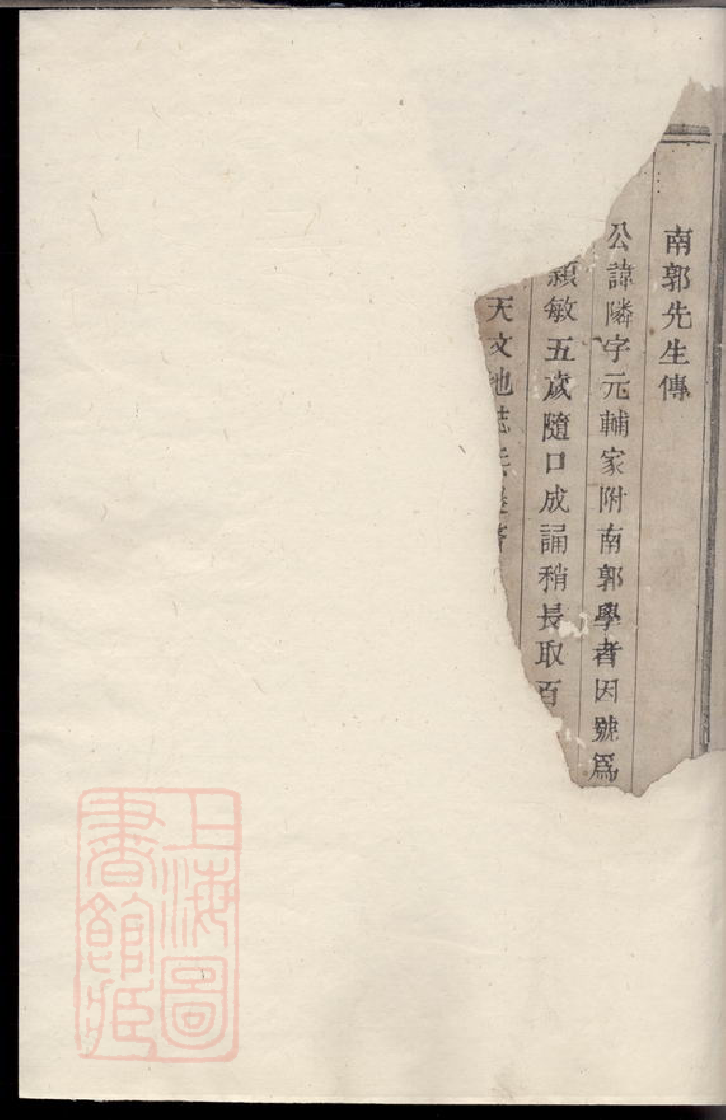 南郭先生傳
公諱隣字元輔家附南郭學者因號爲
穎敏五歲隨口成誦稍長取百
天文地誌
上海圖書館藏